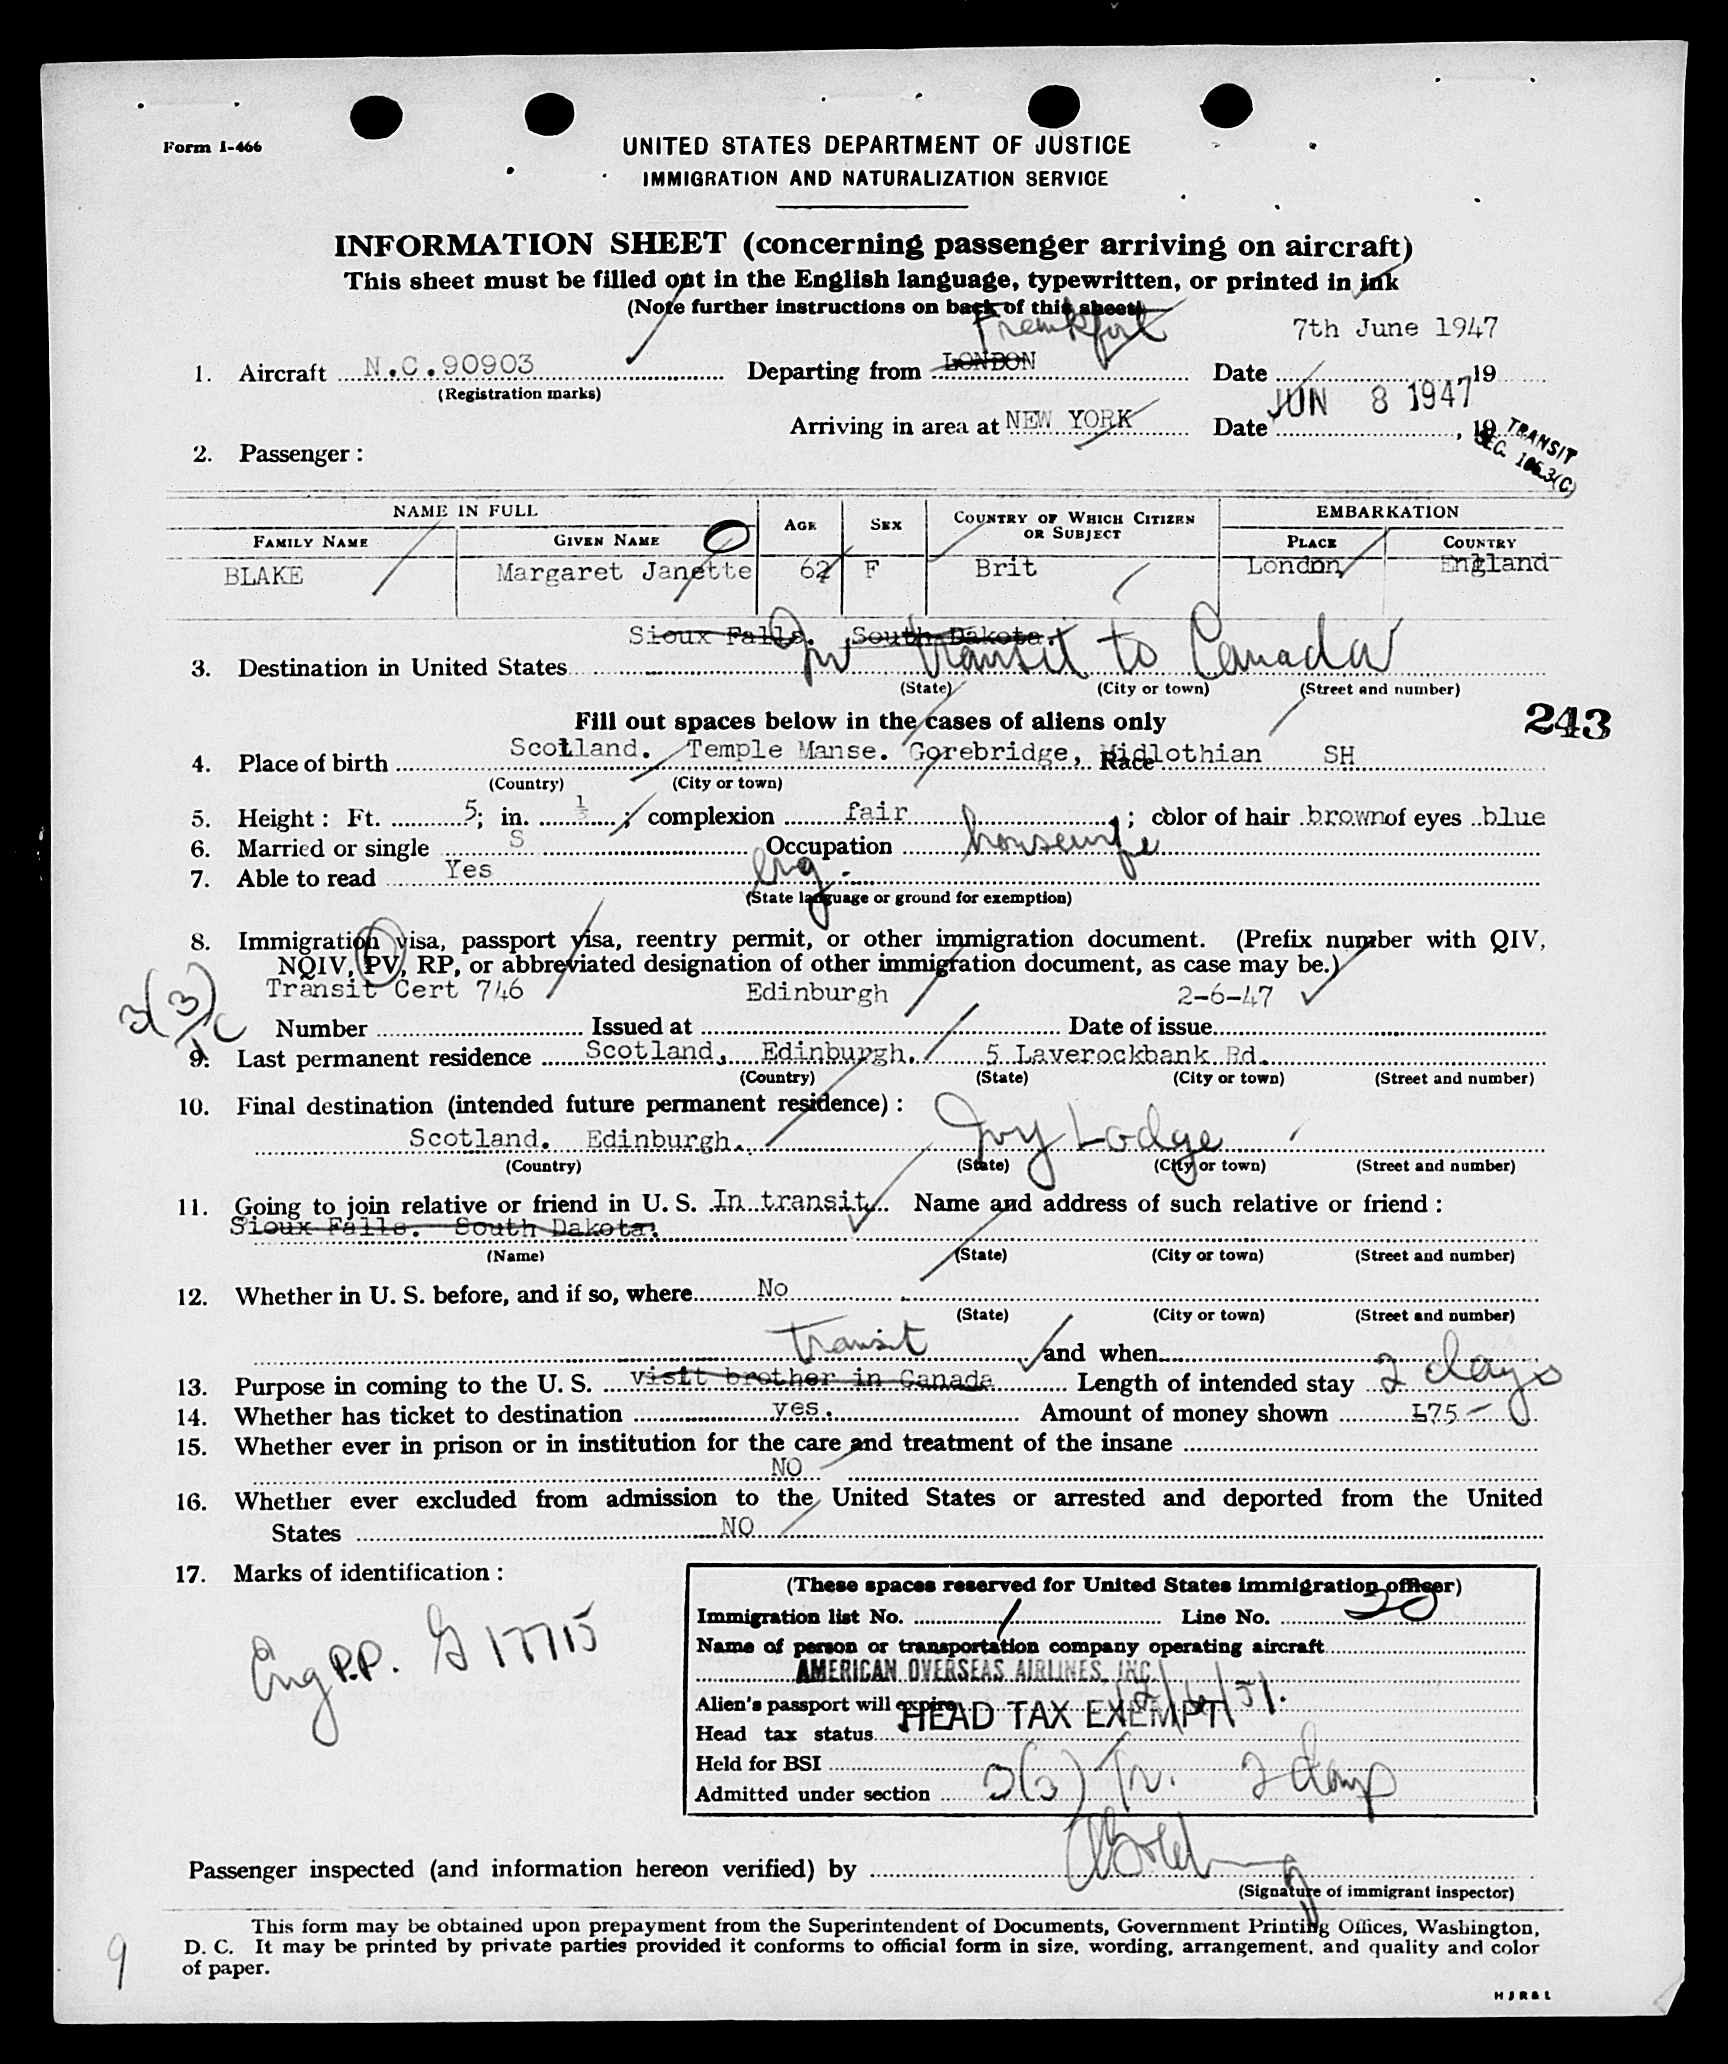 Form I-466
UNITED STATES DEPARTMENT OF JUSTICE
IMMIGRATION AND NATURALIZATION SERVICE
INFORMATION SHEET (concerning passenger arriving on aircraft)
This sheet must be filled out in the English language, typewritten, or printed in ink
(Note further instructions on back of this sheet)
Frankfort
7th June 1947
1. Aircraft N.C.90903 Departing from LONDON Date , 19
(Registration marks)
JUN 8 1947
Arriving in area at NEW YORK Date , 19
TRANSIT
SEC. 165.3(C)
2. Passenger :
NAME IN FULL AGE SEX COUNTRY OF WHICH CITIZEN OR SUBJECT EMBARKATION
FAMILY NAME GIVEN NAME PLACE COUNTRY
BLAKE Margaret Janette 62 F Brit London England
Sioux Falls. South Dakota.
3. Destination in United States In transit to Canada
(State) (City or town) (Street and number)
Fill out spaces below in the cases of aliens only
243
4. Place of birth Scotland. Temple Manse. Gorebridge, Midlothian Race SH
(Country) (City or town)
5. Height : Ft. 5; in. ½ ; complexion fair ; color of hair brown of eyes blue
6. Married or single S Occupation housewife
7. Able to read Yes Eng.
(State language or ground for exemption)
8. Immigration visa, passport visa, reentry permit, or other immigration document. (Prefix number with QIV,
NQIV, PV, RP, or abbreviated designation of other immigration document, as case may be.)
Transit Cert 746 Edinburgh 2-6-47
3(3)
Number Issued at Date of issue
9. Last permanent residence Scotland, Edinburgh. 5 Laverockbank Rd.
(Country) (State) (City or town) (Street and number)
10. Final destination (intended future permanent residence) :
Scotland. Edinburgh. Ivy Lodge
(Country) (State) (City or town) (Street and number)
11. Going to join relative or friend in U. S. In transit Name and address of such relative or friend :
Sioux Falls. South Dakota.
(Name) (State) (City or town) (Street and number)
12. Whether in U. S. before, and if so, where No
(State) (City or town) (Street and number)
transit and when
13. Purpose in coming to the U. S. visit brother in Canada Length of intended stay 2 days
14. Whether has ticket to destination yes. Amount of money shown £75-
15. Whether ever in prison or in institution for the care and treatment of the insane
NO
16. Whether ever excluded from admission to the United States or arrested and deported from the United
States NO
17. Marks of identification :
Eng P.P. G 17715
(These spaces reserved for United States immigration officer)
Immigration list No. 1 Line No. 20
Name of person or transportation company operating aircraft
AMERICAN OVERSEAS AIRLINES, INC.
Alien's passport will expire 12/6/51.
HEAD TAX EXEMPT
Head tax status
Held for BSI
Admitted under section 3(3) Tr. 2 days
Passenger inspected (and information hereon verified) by
(Signature of immigrant inspector)
This form may be obtained upon prepayment from the Superintendent of Documents, Government Printing Offices, Washington,
D. C. It may be printed by private parties provided it conforms to official form in size, wording, arrangement, and quality and color
of paper.
9
H J R & L